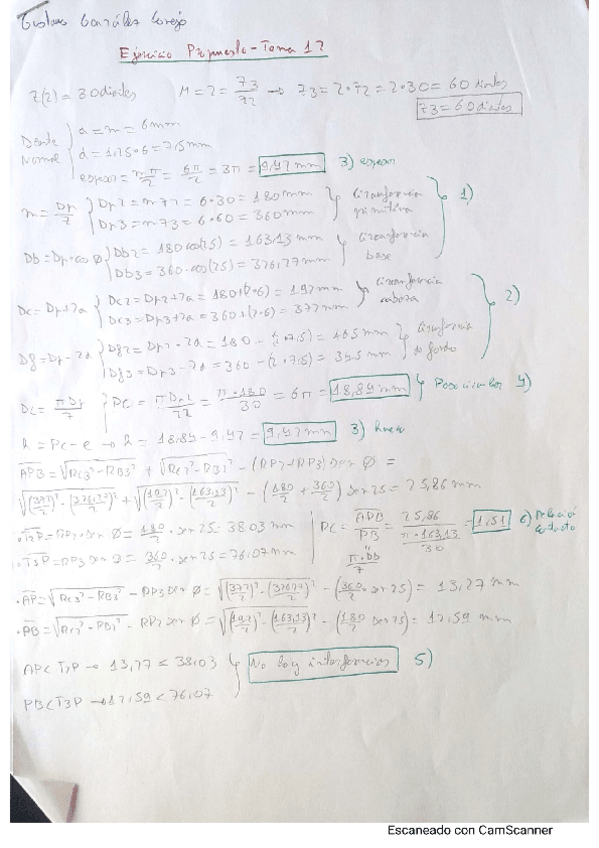 Gustavo González Conejo
Ejercicio Propuesto - Tema 12
z(2) = 30 dientes M = 2 = z3/z2 → z3 = 2·z2 = 2·30 = 60 dientes
z3 = 60 dientes
Diente Normal { a = m = 6 mm
d = 1,25·6 = 7,5 mm
espesor = m·π/2 = 6π/2 = 3π = 9,42 mm 3) espesor
m = Dp/z { Dp2 = m z2 = 6·30 = 180 mm
Dp3 = m z3 = 6·60 = 360 mm } Circunferencia primitiva
1)
Db = Dp·cos Ø { Db2 = 180 cos(25) = 163,13 mm
Db3 = 360·cos(25) = 326,27 mm } Circunferencia base
Dc = Dp+2a { Dc2 = Dp2+2a = 180+(2·6) = 192 mm
Dc3 = Dp3+2a = 360+(2·6) = 372 mm } Circunferencia cabeza
2)
Df = Dp-2d { Df2 = Dp2 - 2d = 180 - (2·7.5) = 165 mm
Df3 = Dp3 - 2d = 360 - (2·7.5) = 345 mm } Circunferencia de fondo
Pc = πDp/z { PC = πDp2/z2 = π·180/30 = 6π = 18,84 mm } Paso circular 4)
h = Pc - e → h = 18,84 - 9,42 = 9,42 mm 3) hueco
APB = √Rc3² - RB3² + √Rc2² - RB2² - (RP2+RP3) sen Ø =
√(372/2)² - (326,27/2)² + √(192/2)² - (163,13/2)² - (180/2 + 360/2) sen 25 = 25,86 mm
·T2P = RP2·sen Ø = 180/2·sen 25 = 38.03 mm
·T3P = RP3 sen Ø = 360/2·sen 25 = 76,07 mm
RC = APB/PB = 25,86/(π·163,13/30) = 1,51 6) Relación contacto
π·Db/z
·AP = √Rc3² - RB3² - RP3 sen Ø = √(372/2)² - (326,27/2)² - (360/2·sen 25) = 13,27 mm
·PB = √Rc2² - RB2² - RP2 sen Ø = √(192/2)² - (163,13/2)² - (180/2·sen 25) = 12,59 mm
AP < T2P → 13,27 < 38,03
PB < T3P → 12,59 < 76,07
No hay interferencias 5)
Escaneado con CamScanner